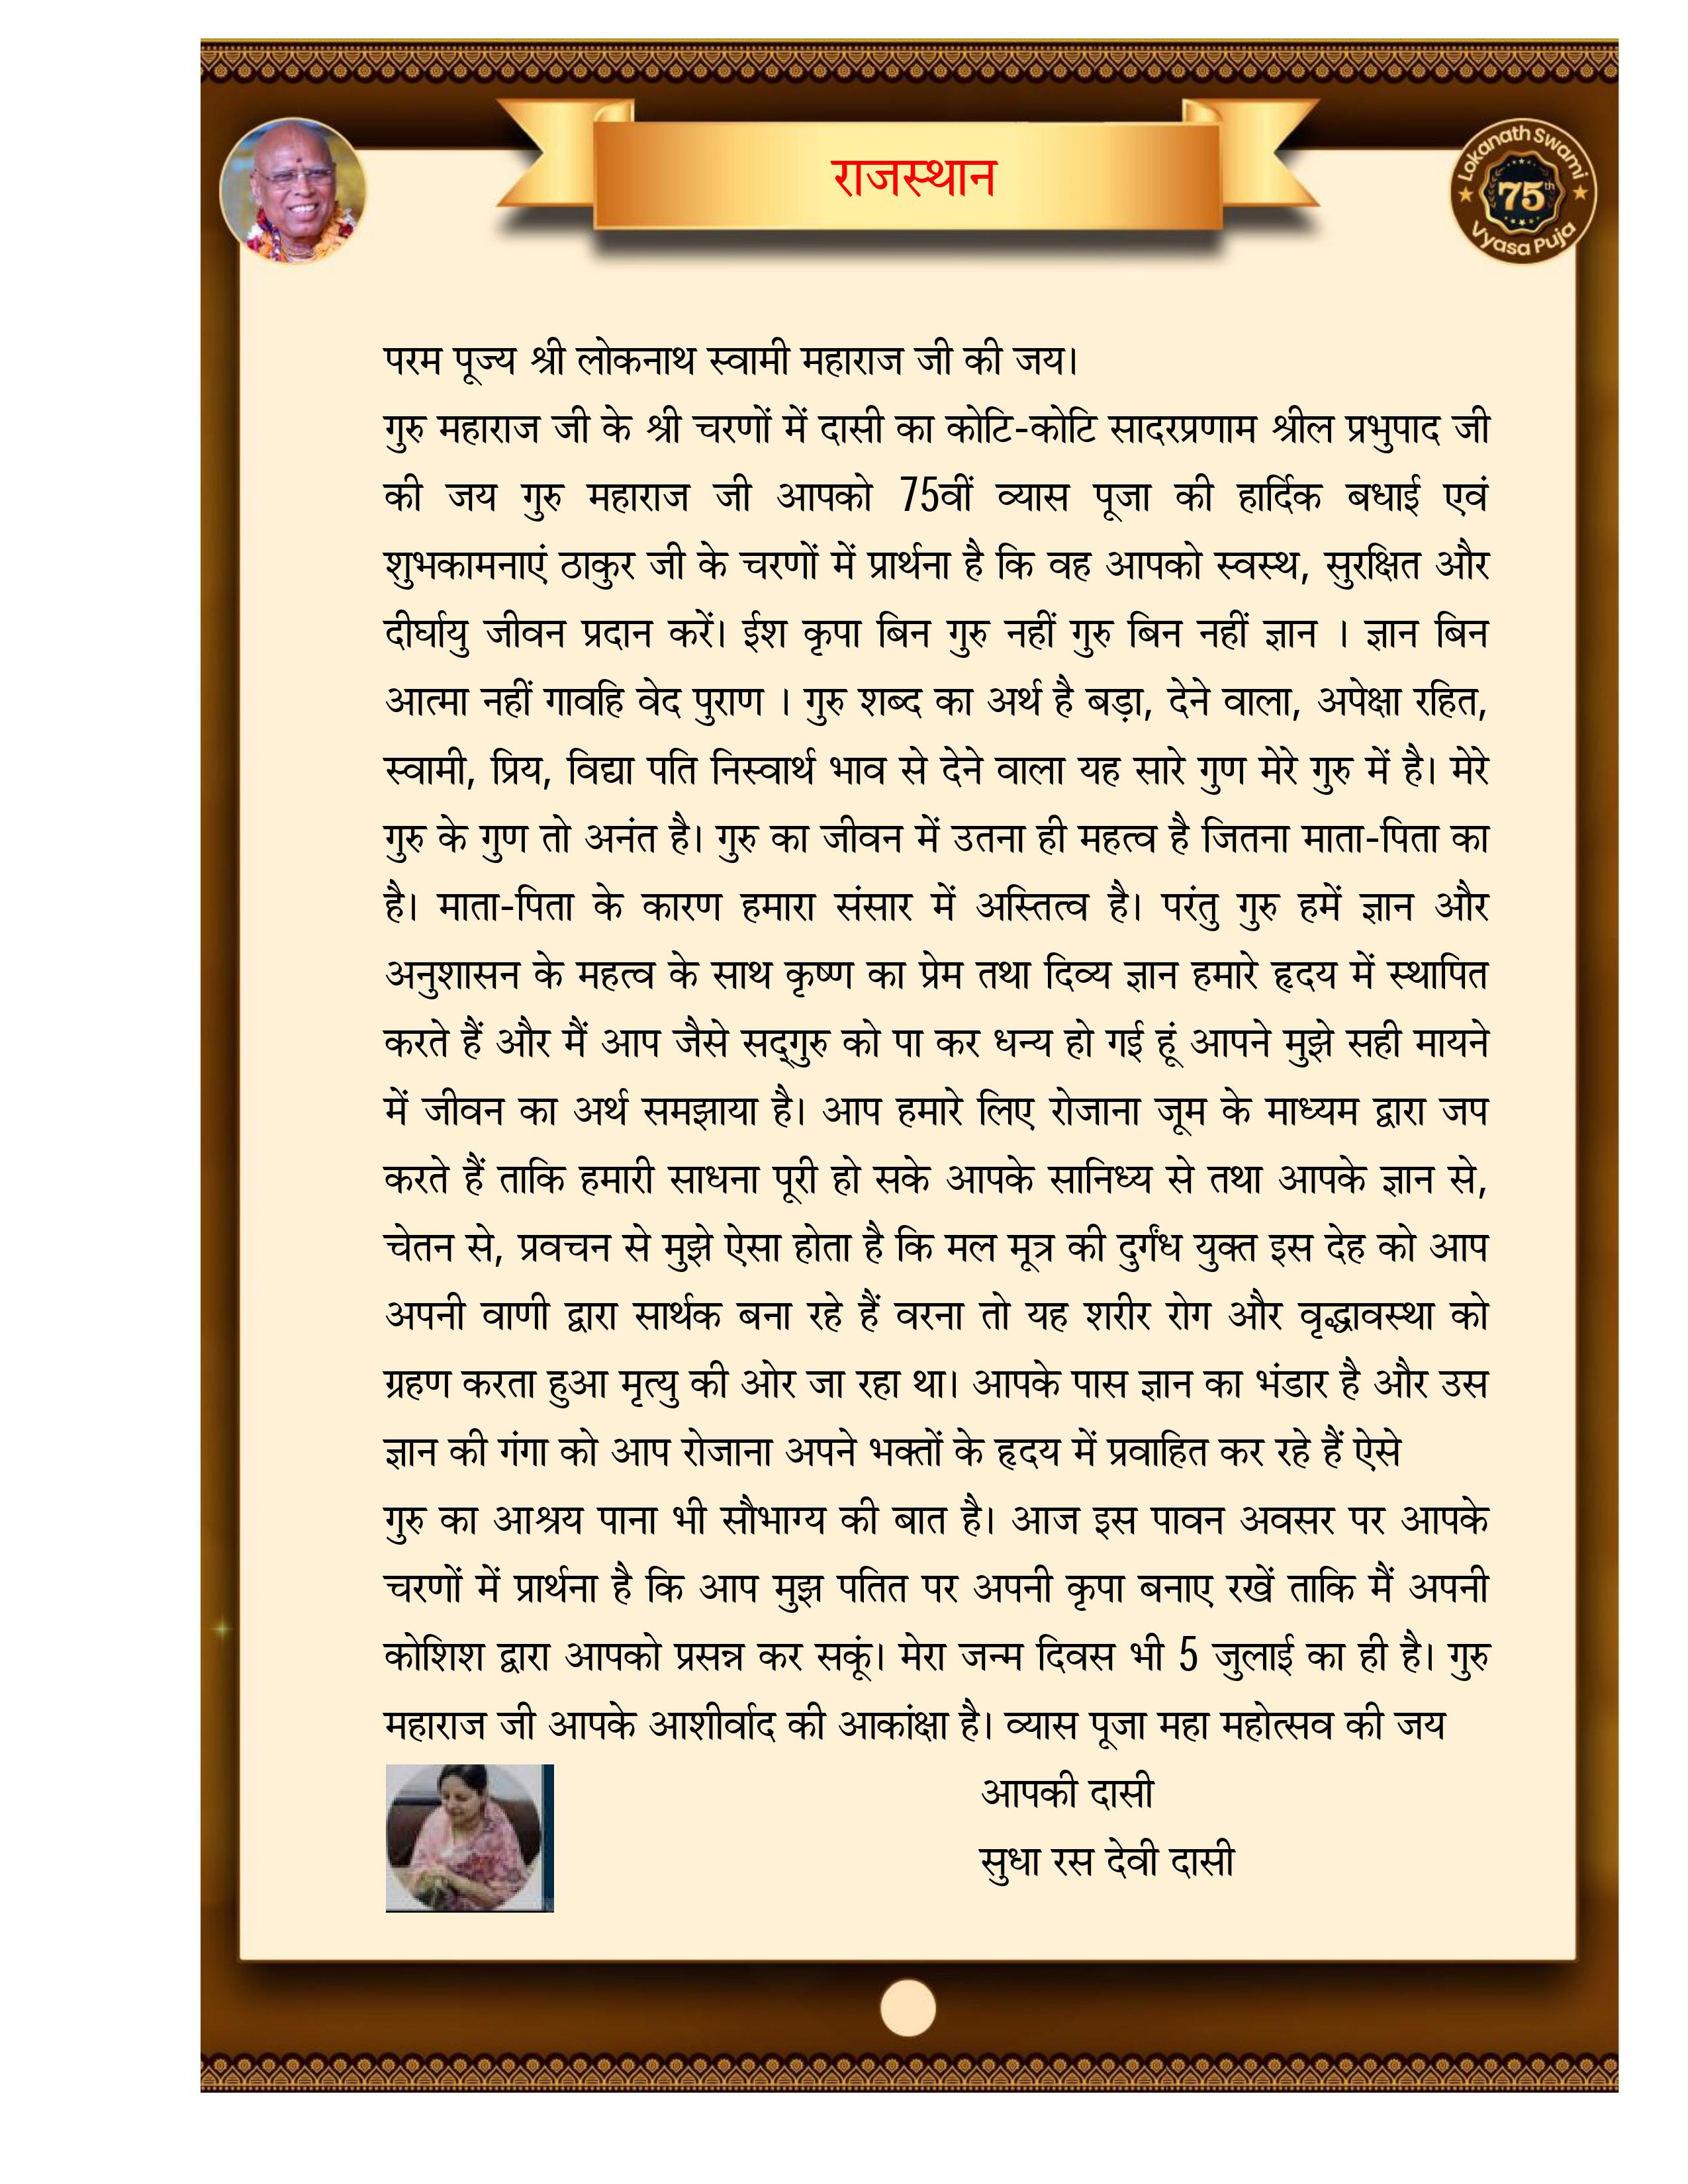 राजस्थान
Lokanath Swami
75th
Vyasa Puja
परम पूज्य श्री लोकनाथ स्वामी महाराज जी की जय।
गुरु महाराज जी के श्री चरणों में दासी का कोटि-कोटि सादरप्रणाम श्रील प्रभुपाद जी
की जय गुरु महाराज जी आपको 75वीं व्यास पूजा की हार्दिक बधाई एवं
शुभकामनाएं ठाकुर जी के चरणों में प्रार्थना है कि वह आपको स्वस्थ, सुरक्षित और
दीर्घायु जीवन प्रदान करें। ईश कृपा बिन गुरु नहीं गुरु बिन नहीं ज्ञान । ज्ञान बिन
आत्मा नहीं गावहि वेद पुराण । गुरु शब्द का अर्थ है बड़ा, देने वाला, अपेक्षा रहित,
स्वामी, प्रिय, विद्या पति निस्वार्थ भाव से देने वाला यह सारे गुण मेरे गुरु में है। मेरे
गुरु के गुण तो अनंत है। गुरु का जीवन में उतना ही महत्व है जितना माता-पिता का
है। माता-पिता के कारण हमारा संसार में अस्तित्व है। परंतु गुरु हमें ज्ञान और
अनुशासन के महत्व के साथ कृष्ण का प्रेम तथा दिव्य ज्ञान हमारे हृदय में स्थापित
करते हैं और मैं आप जैसे सद्‌गुरु को पा कर धन्य हो गई हूं आपने मुझे सही मायने
में जीवन का अर्थ समझाया है। आप हमारे लिए रोजाना जूम के माध्यम द्वारा जप
करते हैं ताकि हमारी साधना पूरी हो सके आपके सानिध्य से तथा आपके ज्ञान से,
चेतन से, प्रवचन से मुझे ऐसा होता है कि मल मूत्र की दुर्गंध युक्त इस देह को आप
अपनी वाणी द्वारा सार्थक बना रहे हैं वरना तो यह शरीर रोग और वृद्धावस्था को
ग्रहण करता हुआ मृत्यु की ओर जा रहा था। आपके पास ज्ञान का भंडार है और उस
ज्ञान की गंगा को आप रोजाना अपने भक्तों के हृदय में प्रवाहित कर रहे हैं ऐसे
गुरु का आश्रय पाना भी सौभाग्य की बात है। आज इस पावन अवसर पर आपके
चरणों में प्रार्थना है कि आप मुझ पतित पर अपनी कृपा बनाए रखें ताकि मैं अपनी
कोशिश द्वारा आपको प्रसन्न कर सकूं। मेरा जन्म दिवस भी 5 जुलाई का ही है। गुरु
महाराज जी आपके आशीर्वाद की आकांक्षा है। व्यास पूजा महा महोत्सव की जय
आपकी दासी
सुधा रस देवी दासी